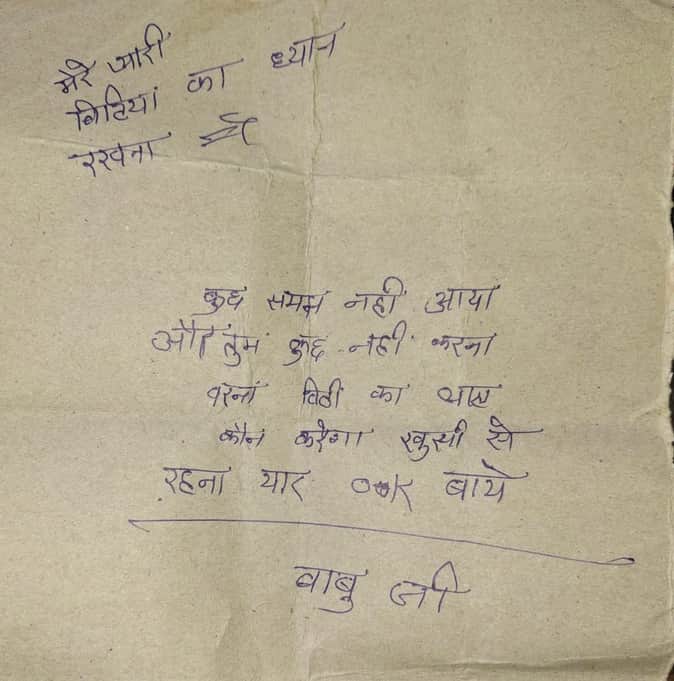 मेरे प्यारी
बिटियां का ध्यान
रखना
कुछ समझ नहीं आया
और तुम कुछ नहीं करना
वरना बिटी का ब्याह
कौन करेगा खुसी से
रहना यार ook बाये
बाबु जी